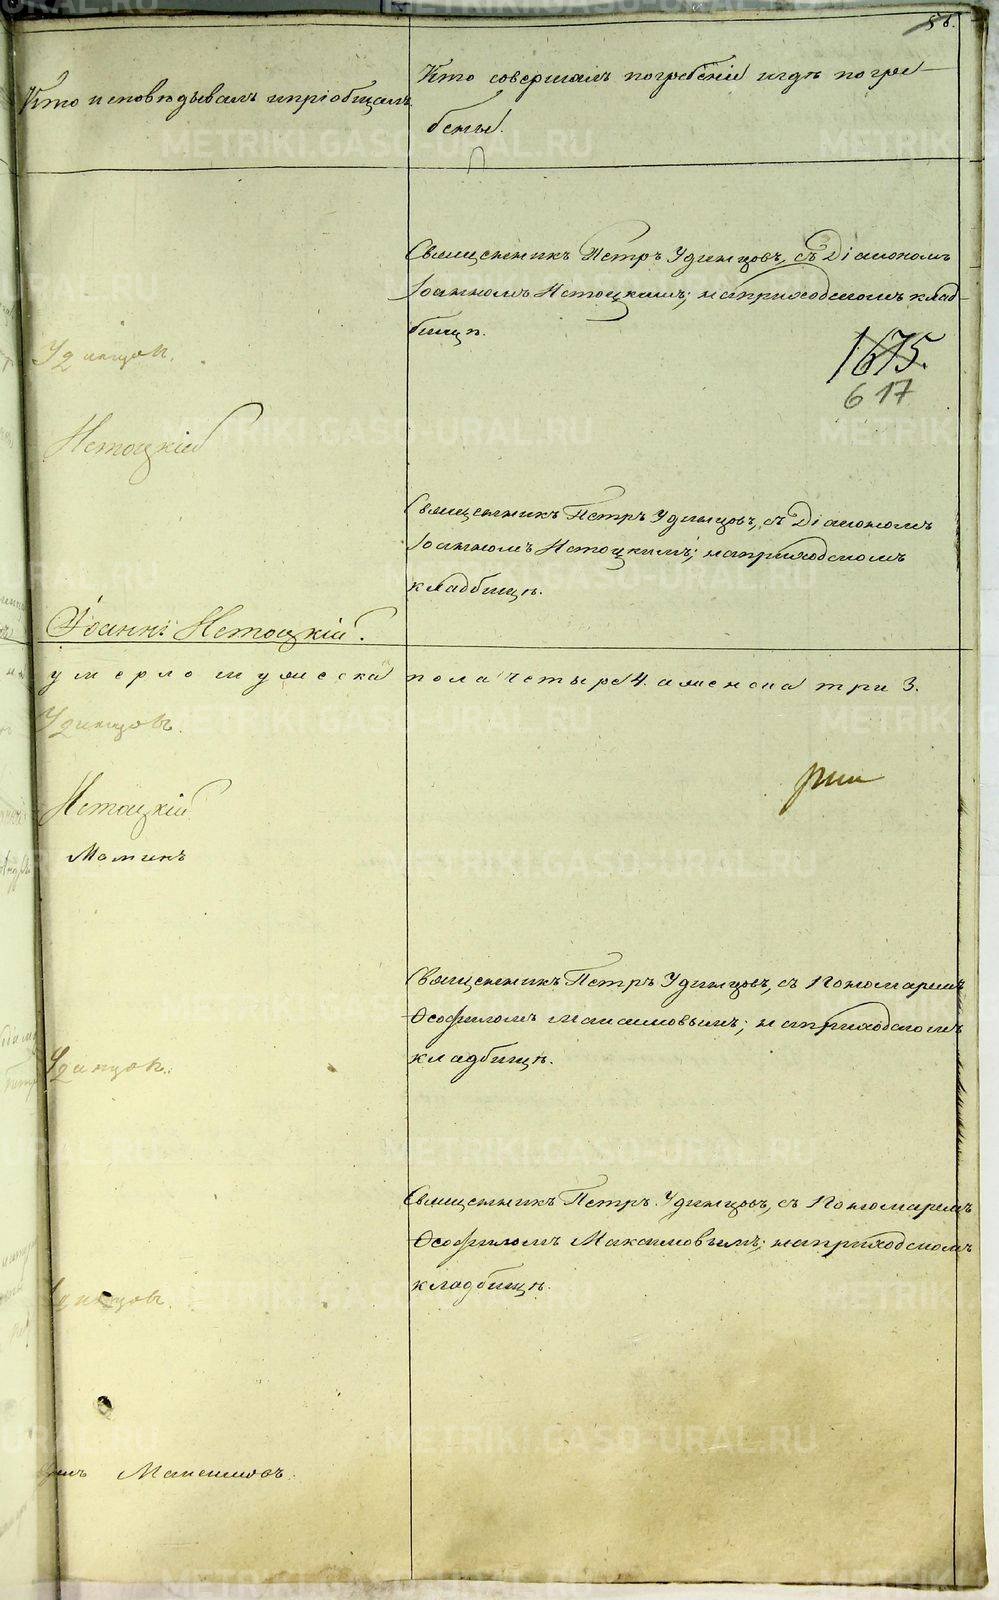 56.
Кто исповѣдывалъ и пріобщалъ
Кто совершалъ погребеніе и гдѣ погре-
бены.
Священникъ Петръ Удинцовъ, съ Діакономъ
Іоанномъ Нетоцкимъ; на приходскомъ клад-
бищѣ.
Удинцов.
1675.
617
Нетоцкій
Священникъ Петръ Удинцовъ, съ Діакономъ
Іоанномъ Нетоцкимъ; на приходскомъ
кладбищѣ.
Іоаннъ Нетоцкій.
умерло мужеска пола четыре 4. а женска три 3.
Удинцовъ.
Нетоцкій
Маминъ
Священникъ Петръ Удинцовъ, съ Пономаремъ
Ѳеофиломъ Максимовымъ; на приходскомъ
кладбищѣ.
Удинцов.
Священникъ Петръ Удинцовъ, съ Пономаремъ
Ѳеофиломъ Максимовымъ; на приходскомъ
кладбищѣ.
Максимовъ.
METRIKI.GASO-URAL.RU